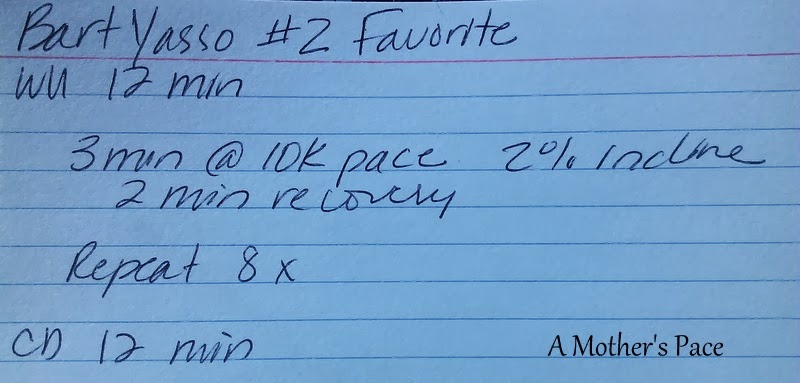 Bart Yasso #2 Favorite
WU 12 min
3 min @ 10K pace 2% Incline
2 min recovery
Repeat 8 x
CD 12 min
A Mother's Pace